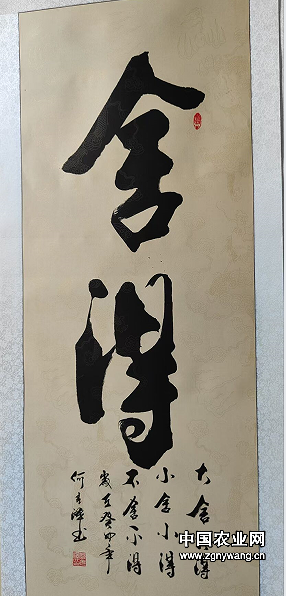 舍得
大舍大得
小舍小得
不舍不得
岁在癸卯年
何
书
中国农业网
www.zgnywang.cn